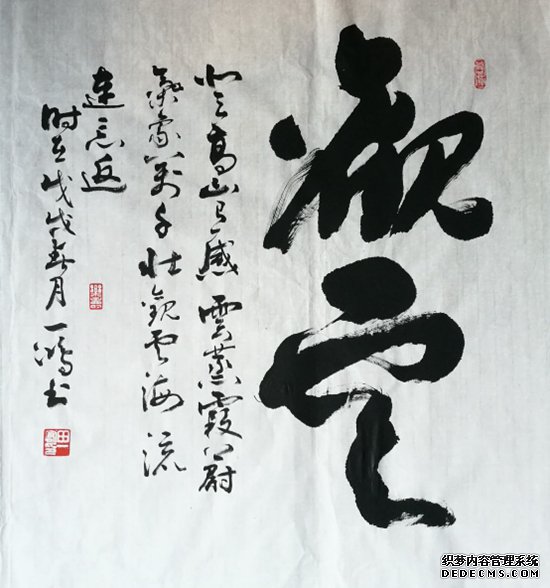 觀雲
登高山有感雲蒸霞蔚
氣象萬千壯觀雲海流
連忘返
時在戊戌春月一鴻书
织梦内容管理系统
DEDECMS.COM